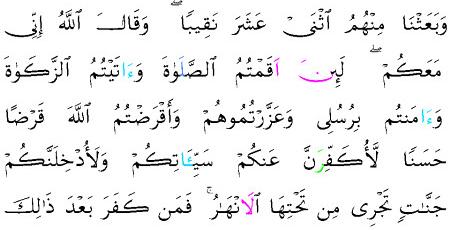 وَبَعَثْنَا مِنْهُمُ اُ۪ثْنَيْ عَشَرَ نَقِيبٗاۖ وَقَالَ اَ۬للَّهُ إِنِّي
مَعَكُمْۖ لَئِنَ اَقَمْتُمُ اُ۬لصَّلَوٰةَ وَءَاتَيْتُمُ اُ۬لزَّكَوٰةَ
وَءَامَنتُم بِرُسُلِي وَعَزَّرْتُمُوهُمْ وَأَقْرَضْتُمُ اُ۬للَّهَ قَرْضاً
حَسَنٗا لَّأُكَفِّرَنَّ عَنكُمْ سَيِّـَٔاتِكُمْ وَلَأُدْخِلَنَّكُمْ
جَنَّٰتٖ تَجْرِي مِن تَحْتِهَا اَ۬لَانْهَٰرُۖ فَمَن كَفَرَ بَعْدَ ذَٰلِكَ